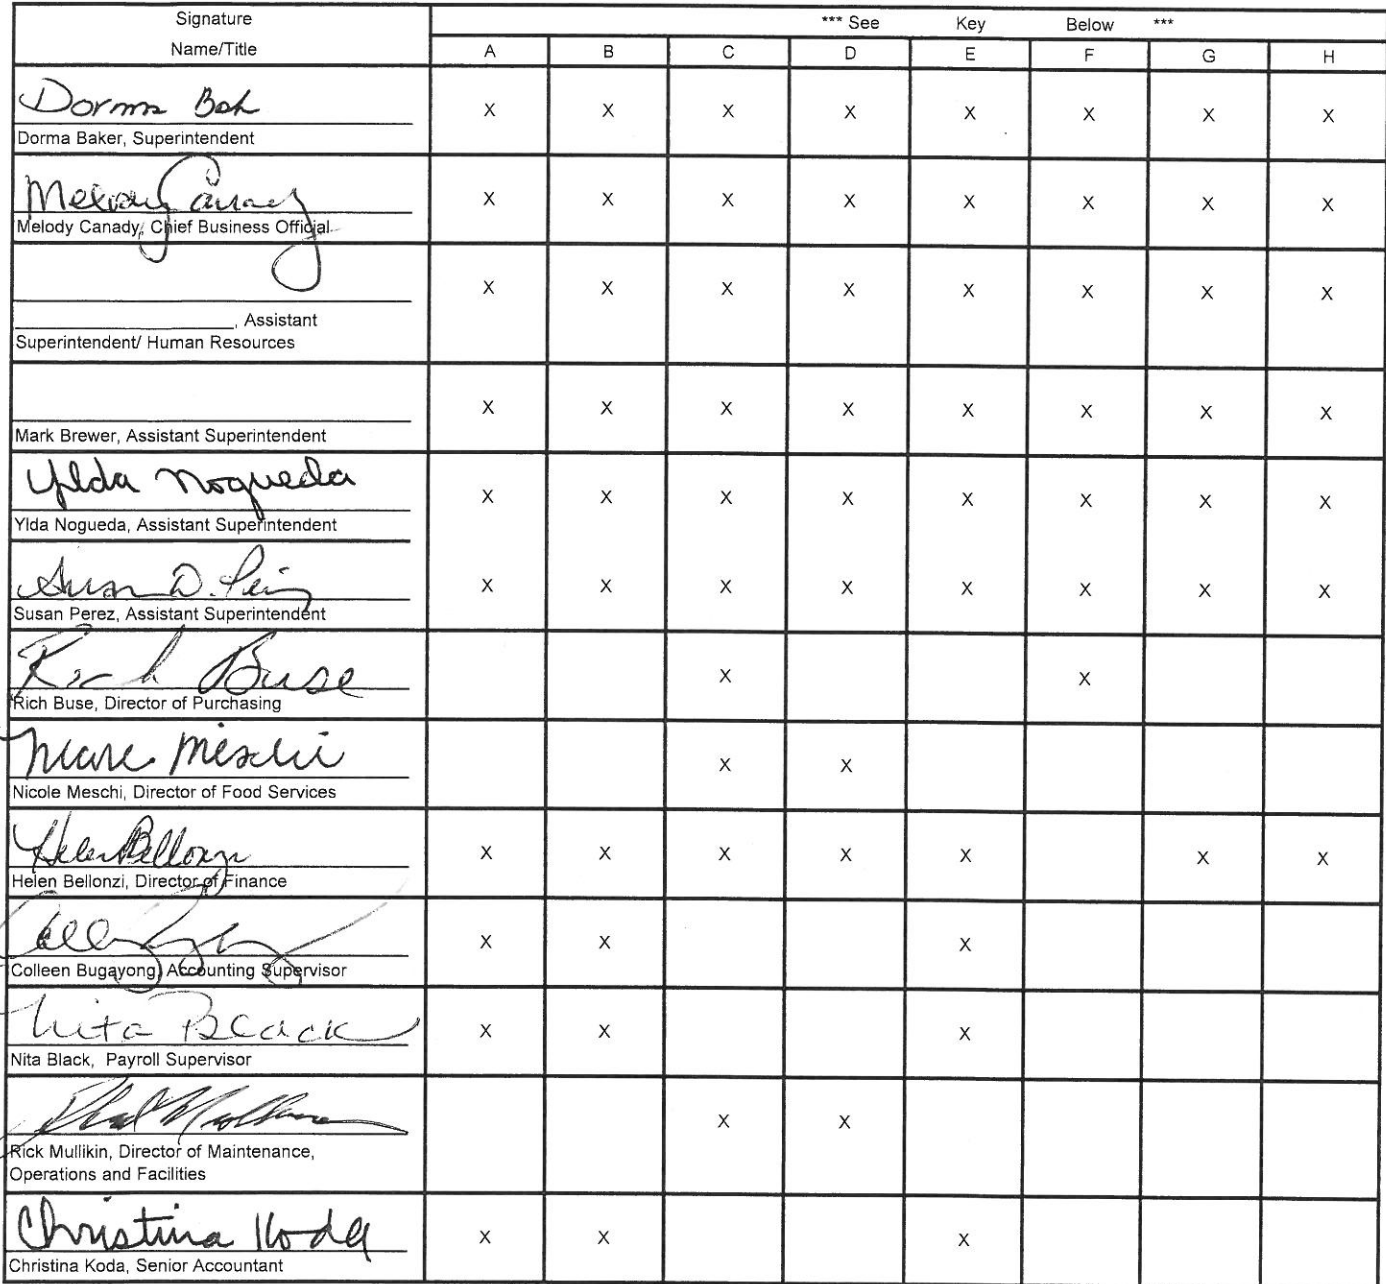 Signature *** See Key Below ***
Name/Title A B C D E F G H
Dorma Bak X X X X X X X X
Dorma Baker, Superintendent
Melody Canady X X X X X X X X
Melody Canady, Chief Business Official
X X X X X X X X
____________________, Assistant
Superintendent/ Human Resources
X X X X X X X X
Mark Brewer, Assistant Superintendent
Ylda Nogueda X X X X X X X X
Ylda Nogueda, Assistant Superintendent
Susan D. Perez X X X X X X X X
Susan Perez, Assistant Superintendent
Rich Buse X X
Rich Buse, Director of Purchasing
Nicole Meschi X X
Nicole Meschi, Director of Food Services
Helen Bellonzi X X X X X X X
Helen Bellonzi, Director of Finance
X X X
Colleen Bugayong, Accounting Supervisor
Nita Black X X X
Nita Black, Payroll Supervisor
X X
Rick Mullikin, Director of Maintenance,
Operations and Facilities
Christina Koda X X X
Christina Koda, Senior Accountant